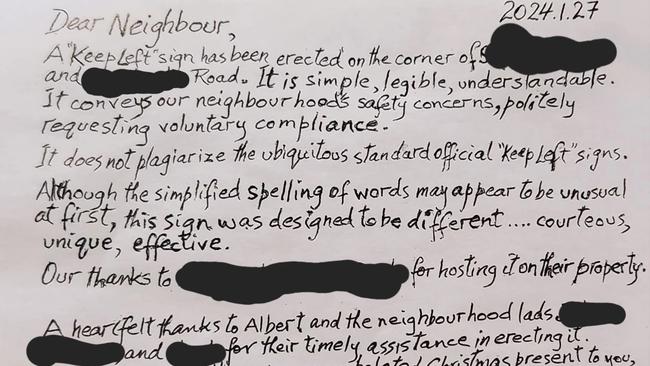 Dear Neighbour,
2024.1.27
A "Keep Left" sign has been erected on the corner of
and Road. It is simple, legible, understandable.
It conveys our neighbourhood's safety concerns, politely
requesting voluntary compliance.
It does not plagiarize the ubiquitous standard official "Keep Left" signs.
Although the simplified spelling of words may appear to be unusual
at first, this sign was designed to be different.... courteous,
unique, effective.
Our thanks to for hosting it on their property.
A heartfelt thanks to Albert and the neighbourhood lads
and for their timely assistance in erecting it.
belated Christmas present to you,